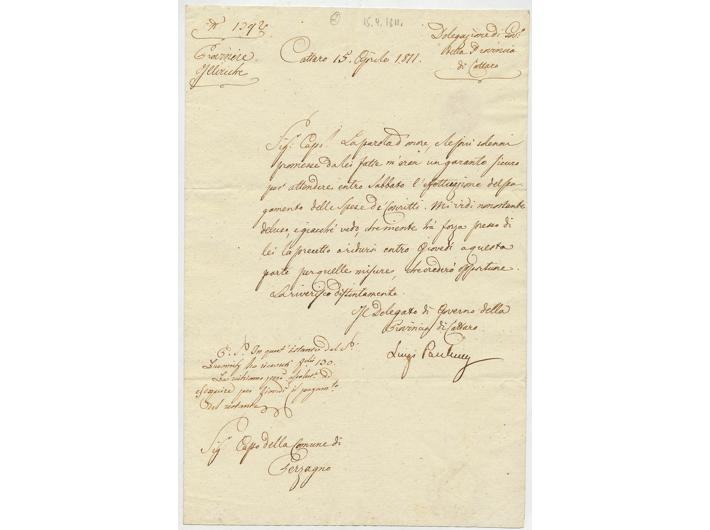 N.º 1392
15.4.1811.
Provincie
Illiriche
Cattaro 15. Aprile 1811.
Delegazione di Gov.º
Della Provincia
di Cattaro
Sig.r Capo! La parola d'onore, e le più solenni
promesse da lei fatte m'eran un garante sicuro
per attendere entro Sabbato l'effettuazione del pa-
gamento delle Spese de' Coscritti. Mi vidi nonostante
deluso, e giacchè vedo, che niente hà forza presso di
lei la precetto a ridursi entro Giovedì a questa
parte per quelle misure, che crederò opportune.
La riverisco distintamente.
Il Delegato di Governo della
Provincia di Cattaro
Luigi
P. S. In quest'istante dal S.r
ho ricevuti 130.
per Giovedì il pagam.to
del restante
Sig.r Capo della Comune di
Perzagno